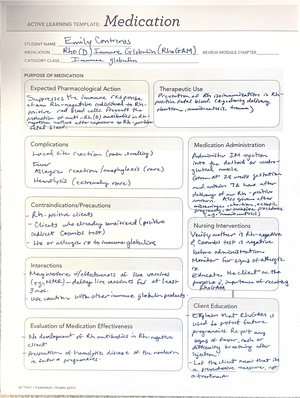 ACTIVE LEARNING TEMPLATE: Medication
STUDENT NAME Emily Contreras
MEDICATION Rho(D) Immune Globulin (RhoGAM) REVIEW MODULE CHAPTER
CATEGORY CLASS Immune globulin
PURPOSE OF MEDICATION
Expected Pharmacological Action
Suppresses the immune response
of an Rh-negative individual to Rh-
positive red blood cells. Prevents the
production of anti-Rh(D) antibodies in Rh-
negative mothers after exposure to Rh-positive
fetal blood.
Therapeutic Use
Prevention of Rh isoimmunization in Rh-
positive fetal blood (e.g. during delivery
abortion, amniocentesis, trauma)
Complications
Local site reaction (pain, swelling)
Fever
Allergic reaction/anaphylaxis (rare)
Hemolysis (extremely rare)
Medication Administration
Administer IM injection
into the deltoid or ventro-
gluteal muscle
Given at 28 weeks gestation
and within 72 hrs after
delivery of an Rh-positive
newborn. Also given after
miscarriage, abortion, ectopic
pregnancy, or procedures
(e.g. amniocentesis)
Contraindications/Precautions
- Rh-positive clients
- Clients who already sensitized (positive
indirect Coombs test)
- Hx of allergic rx to immune globulins
Nursing Interventions
Verify mother is Rh-negative
& Coombs test is negative
before administration
Monitor for signs of allergic
rx
Educate the client on the
purpose & importance of receiving
RhoGAM
Interactions
May interfere w/effectiveness of live vaccines
(e.g. MMR) - delay live vaccines for at least
3 mos.
Use caution with other immune globulin products.
Client Education
- Explain that RhoGAM is
used to protect future
pregnancies. Report any
signs of fever, rash or
difficulty breathing after
injection
- Let the client know that its
a preventive measure, not
a treatment
Evaluation of Medication Effectiveness
- No development of Rh antibodies in Rh-negative
client
- Prevention of hemolytic disease of the newborn
in future pregnancies.
ACTIVE LEARNING TEMPLATES